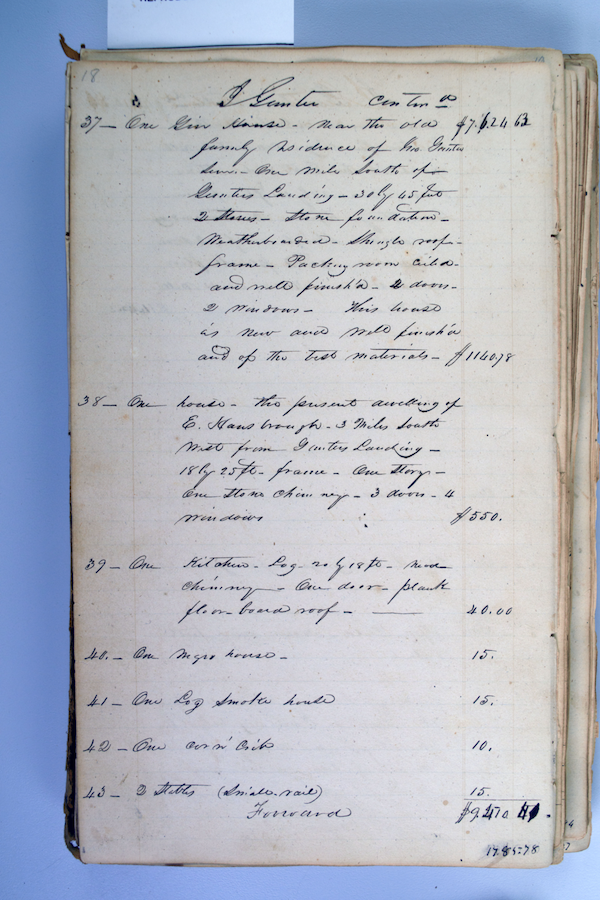 18
J Gunter contin'd
37 - One Gin House - Near the old $7,624 63
family residence of Jno Gunter
Senr. - One Mile South of
Gunters Landing - 30 by 45 feet
2 Stories - Stone foundation -
Weatherboarded - Shingle roof -
frame - Packing room ceiled -
and well finish'd - 2 doors -
2 windows - This house
is new and well finish'd
and of the best materials - $1140.78
38 - One house - the present dwelling of
E. Hansbrough - 3 Miles South
West from Gunters Landing -
18 by 25 ft - frame - One Story -
One Stone Chimney - 3 doors - 4
windows $550.
39 - One Kitchen - Log - 20 by 18 ft -
chimney - One door - plank
floor - board roof - 40.00
40. - One Negro house - 15.
41 - One Log Smoke house 15.
42 - One corn Crib 10.
43 - 2 Stables (Small. rail) 15.
Forward $9.410 41.
1785:78